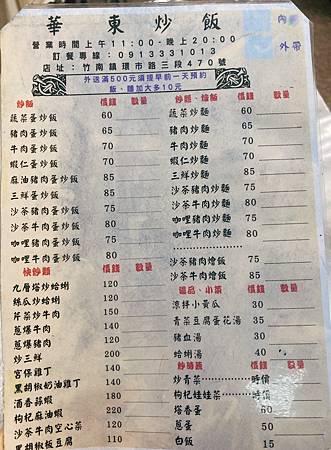 華東炒飯
內
外帶
營業時間上午11:00-晚上20:00
訂餐專線：0913331013
店址：竹南鎮環市路三段470號
外送滿500元須提早前一天預約
飯、麵加大多10元
炒飯 價錢 數量
蔬菜蛋炒飯 60
豬肉蛋炒飯 65
牛肉蛋炒飯 70
蝦仁蛋炒飯 70
麻油豬肉蛋炒飯 85
三鮮蛋炒飯 85
沙茶豬肉蛋炒飯 75
沙茶牛肉蛋炒飯 80
咖哩豬肉蛋炒飯 75
咖哩牛肉蛋炒飯 80
快炒類 價錢 數量
九層塔炒蛤蜊 120
絲瓜炒蛤蜊 120
芹菜炒牛肉 120
蔥爆牛肉 120
蔥爆豬肉 120
炒三鮮 200
宮保雞丁 140
黑胡椒奶油雞丁 140
酒香蒜蝦 200
枸杞麻油蝦 200
沙茶牛肉空心菜 140
黑胡椒板豆腐 110
炒麵、燴麵 價錢 數量
蔬菜炒麵 60
豬肉炒麵 65
牛肉炒麵 70
蝦仁炒麵 70
三鮮炒麵 85
沙茶豬肉炒麵 75
沙茶牛肉炒麵 80
咖哩豬肉炒麵 75
咖哩牛肉炒麵 80
沙茶豬肉燴飯 80
沙茶牛肉燴飯 85
湯品、小菜 價錢 數量
涼拌小黃瓜 30
青菜豆腐蛋花湯 35
豬血湯 30
蛤蜊湯 40
炒時蔬 價錢 數量
炒青菜 時價
枸杞娃娃菜 時價
塔香蛋 60
蔥蛋 50
白飯 15